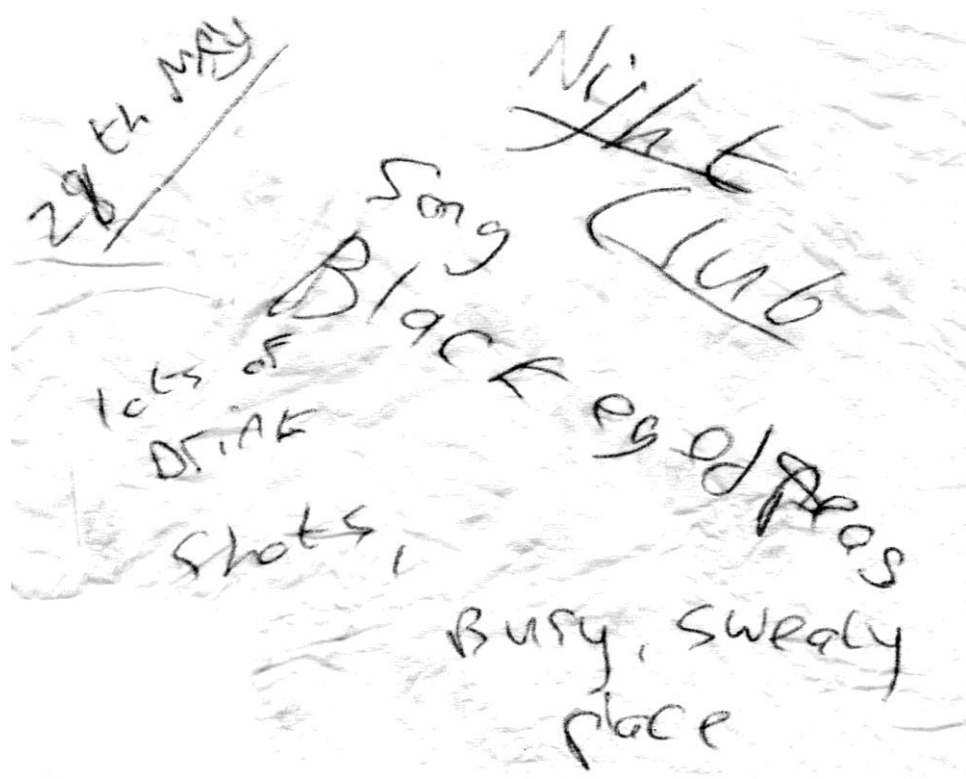 28th May
Night
Club
Song
Black eyed peas
lots of
Drink
Shots,
Busy, sweaty
place